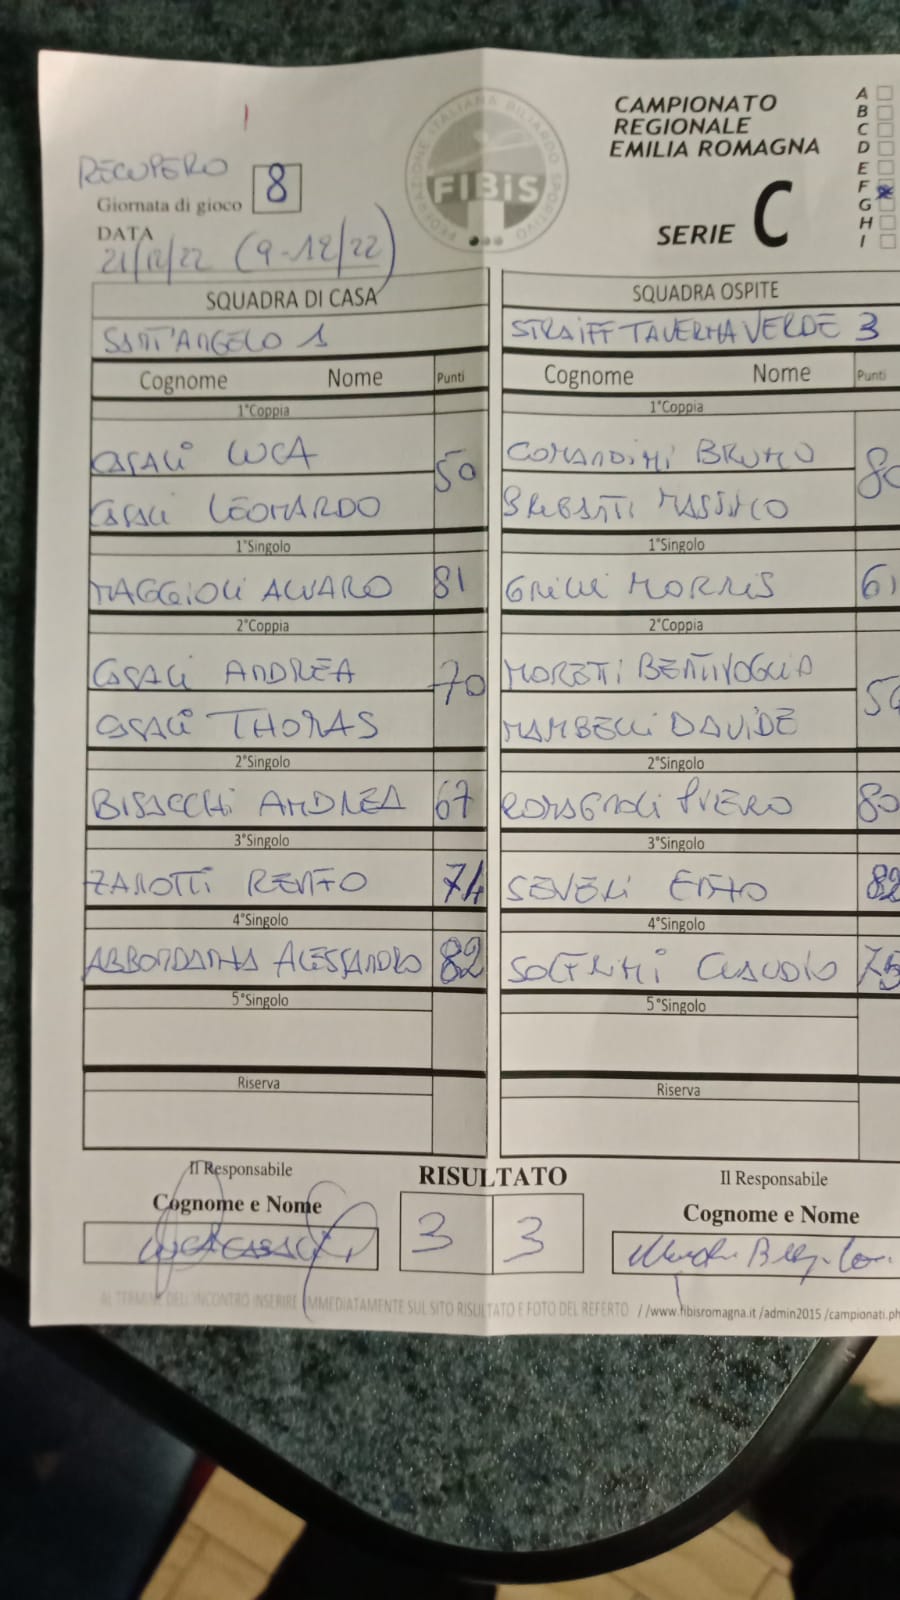 RECUPERO
Giornata di gioco 8
DATA
21/12/22 (9-12/22)
FEDERAZIONE ITALIANA BILIARDO SPORTIVO
FIBiS
CAMPIONATO
REGIONALE
EMILIA ROMAGNA
SERIE C
A
B
C
D
E
F
G
H
I
SQUADRA DI CASA SQUADRA OSPITE
SANT'ANGELO 1 STRAIFF TAVERNA VERDE 3
Cognome Nome Punti Cognome Nome Punti
1°Coppia 1°Coppia
CASALI LUCA 50 COMANDINI BRUNO 80
CASALI LEONARDO MASSIMO
1°Singolo 1°Singolo
MAGGIOLI ALVARO 81 GRILLI MORRIS 61
2°Coppia 2°Coppia
CASALI ANDREA 70 MORETTI BENTIVOGLIO
CASALI THOMAS MAMBELLI DAVIDE
2°Singolo 2°Singolo
BISACCHI ANDREA 67 ROMAGNOLI PIERO 80
3°Singolo 3°Singolo
ZANOTTI RENZO 74 SEVERI ENZO 82
4°Singolo 4°Singolo
ABBONDANZA ALESSANDRO 82 SOLFRINI CLAUDIO 75
5°Singolo 5°Singolo
Riserva Riserva
Il Responsabile RISULTATO Il Responsabile
Cognome e Nome 3 3 Cognome e Nome
LUCA CASALI
AL TERMINE DELL'INCONTRO INSERIRE IMMEDIATAMENTE SUL SITO RISULTATO E FOTO DEL REFERTO //www.fibisromagna.it/admin2015/campionati.ph